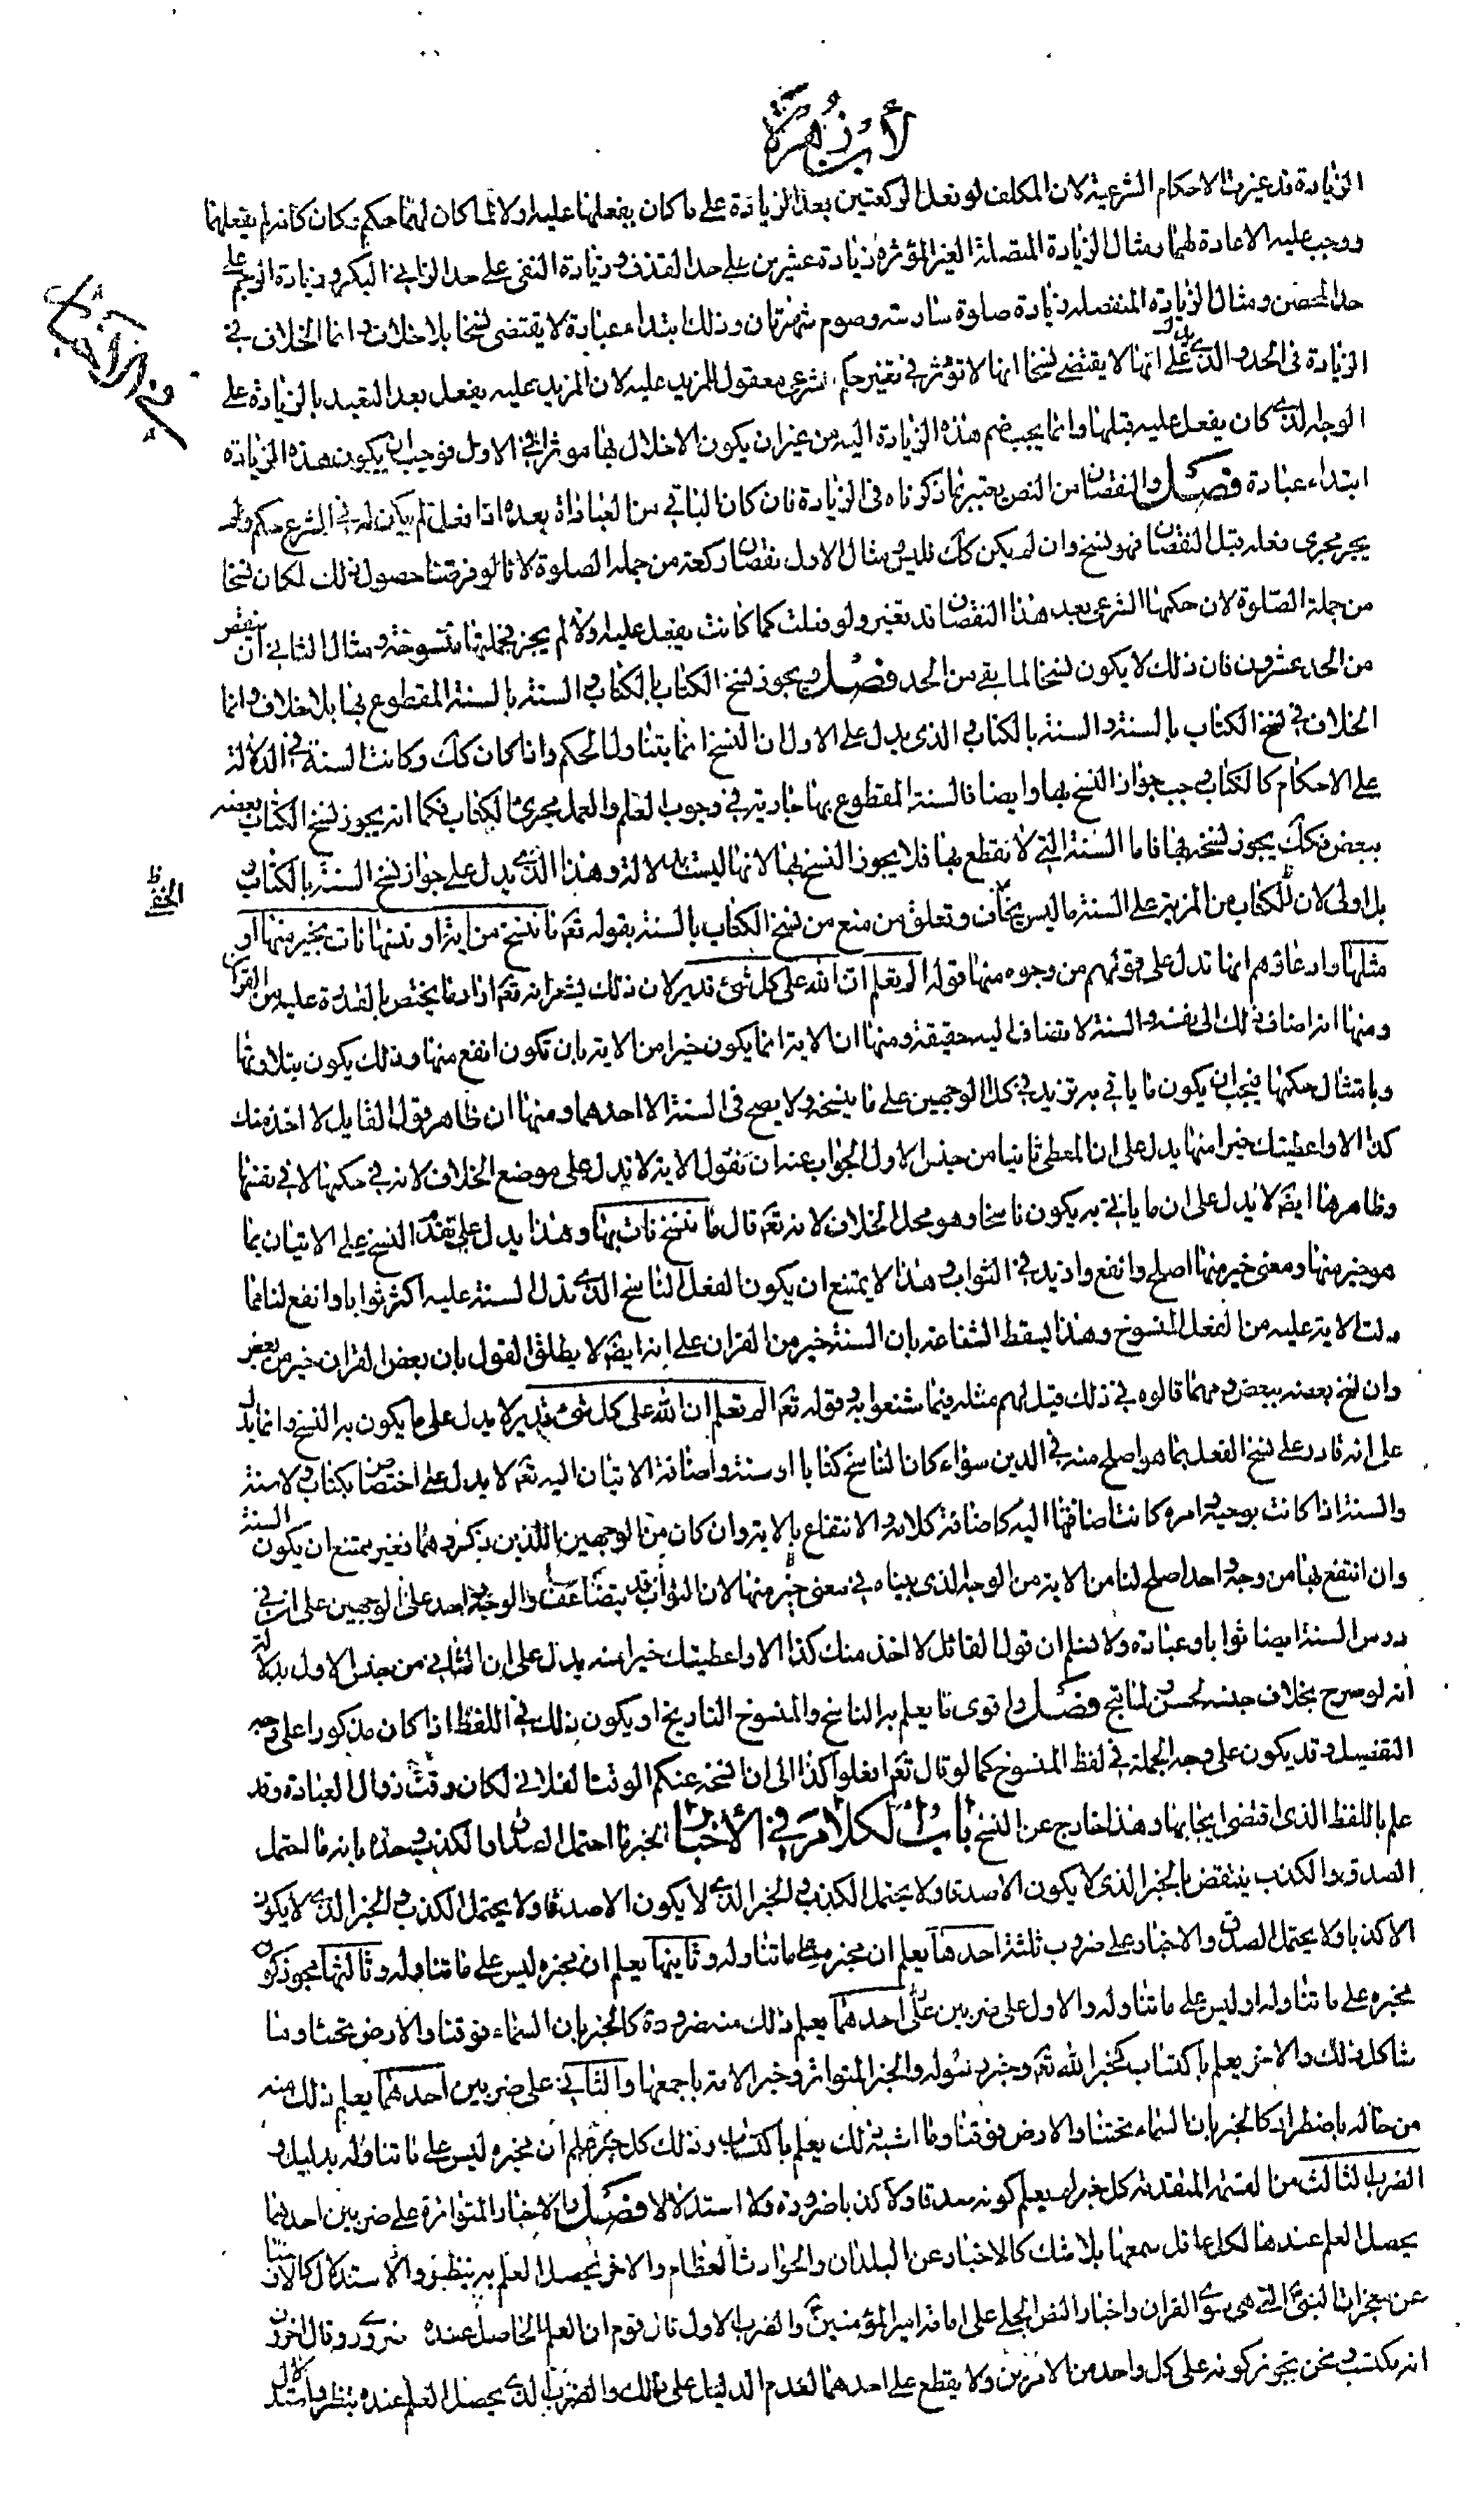 لابن زهرة
الزيادة قد غيرت الاحكام الشرعية لان المكلف لو فعل الركعتين بعد الزيادة على ما كان يفعلهما عليه اولا لما كان لهما حكم وكان كانه لم يفعلهما
ووجب عليه الاعادة لهما ومثال الزيادة المتصلة الغير المؤثرة زيادة عشرين على حد القذف وزيادة النفى على حد الزانى البكر وزيادة الرجم على
حد المحصن ومثال الزيادة المنفصلة زيادة صلوة سادسة وصوم شهر ثان وذلك ابتداء عبادة لا يقتضى نسخا بلا خلاف وانما الخلاف فى
الزيادة فى الحد والذى يدل على انها لا يقتضى نسخا انها لا تؤثر فى تغير حكم شرعى معقول للمزيد عليه لان المزيد عليه يفعل بعد التعبد بالزيادة على
الوجه الذى كان يفعل عليه قبلها وانما يجب ضم هذه الزيادة اليه من غير ان يكون الاخلال بها موثرا فى الاول فوجب ان يكون هذه الزيادة
ابتداء عبادة فصل والنقصان من النص يعتبر بما ذكرناه فى الزيادة فان كان الباقى من العبادة بعده اذا فعل لم يكن له فى الشرع حكم ولم
يجر مجرى فعله قبل النقصان فهو نسخ وان لم يكن كك فليس مثال الاول نقصان ركعة من جملة الصلوة لانا لو فرضنا حصول ذلك لكان نسخا
من جملة الصلوة لان حكمها الشرعى بعد هذا النقصان قد تغير ولو فعلت كما كانت يفعل عليه اولا لم يجز فجملتها منسوخة ومثال الثانى ان ينقص
من الحد عشرون فان ذلك لا يكون نسخا لما بقى من الحد فصل ويجوز نسخ الكتاب بالكتاب والسنة بالسنة المقطوع بها بلا خلاف وانما
الخلاف فى نسخ الكتاب بالسنة والسنة بالكتاب والذى يدل على الاول ان النسخ انما يتناول الحكم واذا كان كك وكانت السنة فى الدلالة
على الاحكام كالكتاب وجب جواز النسخ بها وايضا فالسنة المقطوع بها جارية فى وجوب العلم والعمل مجرى الكتاب فكما انه يجوز نسخ الكتاب بعضه
ببعض فكك يجوز نسخه بها فاما السنة التى لا نقطع بها فلا يجوز النسخ بها لانها ليست بدلالة وهذا الذى يدل على جواز نسخ السنة بالكتاب
بل اولى لان للكتاب من المزية على السنة ما ليس بخاف وتعلق من منع من نسخ الكتاب بالسنة بقوله تع ما ننسخ من اية او ننسها نات بخير منها او
مثلها وادعاؤهم انها تدل على قولهم من وجوه منها قوله الم تعلم ان الله على كل شئ قدير لان ذلك يشعر انه تع اراد ما يختص بالقدرة عليه من القران
ومنها انه اضاف ذلك الى نفسه والسنة لا تضاف اليه حقيقة ومنها ان الاية انما يكون خيرا من الاية بان تكون انفع منها وذلك يكون بتلاوتها
وبامتثال حكمها فيجب ان يكون ما ياتى به يزيد فى كلا الوجهين على ما ينسخه ولا يصح فى السنة الا احدهما ومنها ان ظاهر قول القايل لا اخذ منك
كذا الا واعطيتك خيرا منها يدل على ان المعطى ثانيا من جنس الاول الجواب عنه ان نقول الاية لا تدل على موضع الخلاف لانه فى حكمها لا فى نفسها
وظاهرها ايضا لا يدل على ان ما ياتى به يكون ناسخا وهو محل الخلاف لانه تع قال ما ننسخ نات بها وهذا يدل على تقدم النسخ على الاتيان بما
هو خير منها ومعنى خير منها اصلح وانفع وازيد فى الثواب وهذا لا يمتنع ان يكون الفعل الناسخ الذى تدل السنة عليه اكثر ثوابا وانفع لنا مما
دلت الاية عليه من الفعل المنسوخ وهذا يسقط الشناعة بان السنة خير من القران على انه ايضا لا يطلق القول بان بعض القران خير من بعض
وان نسخ بعضه ببعض ومهما قالوه فى ذلك قيل لهم مثله فيما شنعوا به وقوله تع الم تعلم ان الله على كل شئ قدير لا يدل على ما يكون به النسخ وانما يدل
على انه قادر على نسخ الفعل بما هو اصلح منه فى الدين سواء كان الناسخ كتابا او سنة واضافة الاتيان اليه تع لا يدل على اختصاص بكتاب ولا سنة
والسنة اذا كانت بوحيه وامره كانت اضافتها اليه كاضافة كلامه والانتفاع بالاية وان كان من الوجهين اللذين ذكروهما فغير ممتنع ان يكون السنة
وان انتفع بها من وجه واحد اصلح لنا من الاية من الوجه الذى بيناه فى معنى خير منها لان الثواب قد يتضاعف والوجه واحد على الوجهين على ان فى
درس السنة ايضا ثوابا وعبادة ولا نسلم ان قول القائل لا اخذ منك كذا الا واعطيتك خيرا منه يدل على ان الثانى من جنس الاول بدلالة
انه لو صرح بخلاف جنسه لحسن فصل واقوى ما يعلم به الناسخ والمنسوخ التاريخ او يكون ذلك فى اللفظ اذا كان مذكورا على وجه
التفصيل وقد يكون على وجه الجملة فى لفظ المنسوخ كما لو قال تع افعلوا كذا الى ان انسخه عنكم الوقت الفلانى لكان وقت زوال العبادة وقد
علم باللفظ الذى اقتضى ايجابها وهذا خارج عن النسخ باب الكلام فى الاخبار الخبر ما احتمل الصدق او الكذب وحده بانه ما احتمل
الصدق والكذب ينتقض بالخبر الذى لا يكون الا صدقا ولا يحتمل الكذب والخبر الذى لا يكون الا صدقا ولا يحتمل الكذب والخبر الذى لا يكون
الا كذبا ولا يحتمل الصدق والاخبار على ضروب ثلثة احدها يعلم ان مخبره على ما تناوله وثانيها يعلم ان مخبره ليس على ما تناوله وثالثها يجوز كون
مخبره على ما تناوله او ليس على ما تناوله والاول على ضربين احدهما يعلم ذلك منه ضرورة كالخبر بان السماء فوقنا والارض تحتنا وما
شاكل ذلك والاخر يعلم باكتساب كخبر الله تع وخبر رسوله والخبر المتواتر وخبر الامة باجمعها والثانى على ضربين احدهما يعلم ذلك منه
من حاله باضطرار كالخبر بان السماء تحتنا والارض فوقنا وما اشبه ذلك يعلم باكتساب وذلك كل خبر علم ان مخبره ليس على ما تناوله بدليل و
الضرب الثالث من القسمة المتقدمة كل خبر لم يعلم كونه صدقا ولا كذبا ضرورة ولا استدلالا فصل والاخبار المتواترة على ضربين احدهما
يحصل العلم عندها لكل عاقل سمعها بلا شك كالاخبار عن البلدان والحوادث العظام والاخر يحصل العلم به بنظر والاستدلال كالاخبار
عن معجزات النبى التى هى سوى القران واخبار النص الجلى على امامة امير المؤمنين والضرب الاول قال قوم ان العلم الحاصل عنده ضرورى وقال اخرون
انه مكتسب ونحن نجوز كونه على كل واحد من الامرين ولا يقطع على احدهما لعدم الدليل على ذلك والضرب الذى يحصل العلم عنده بنظر واستدلال